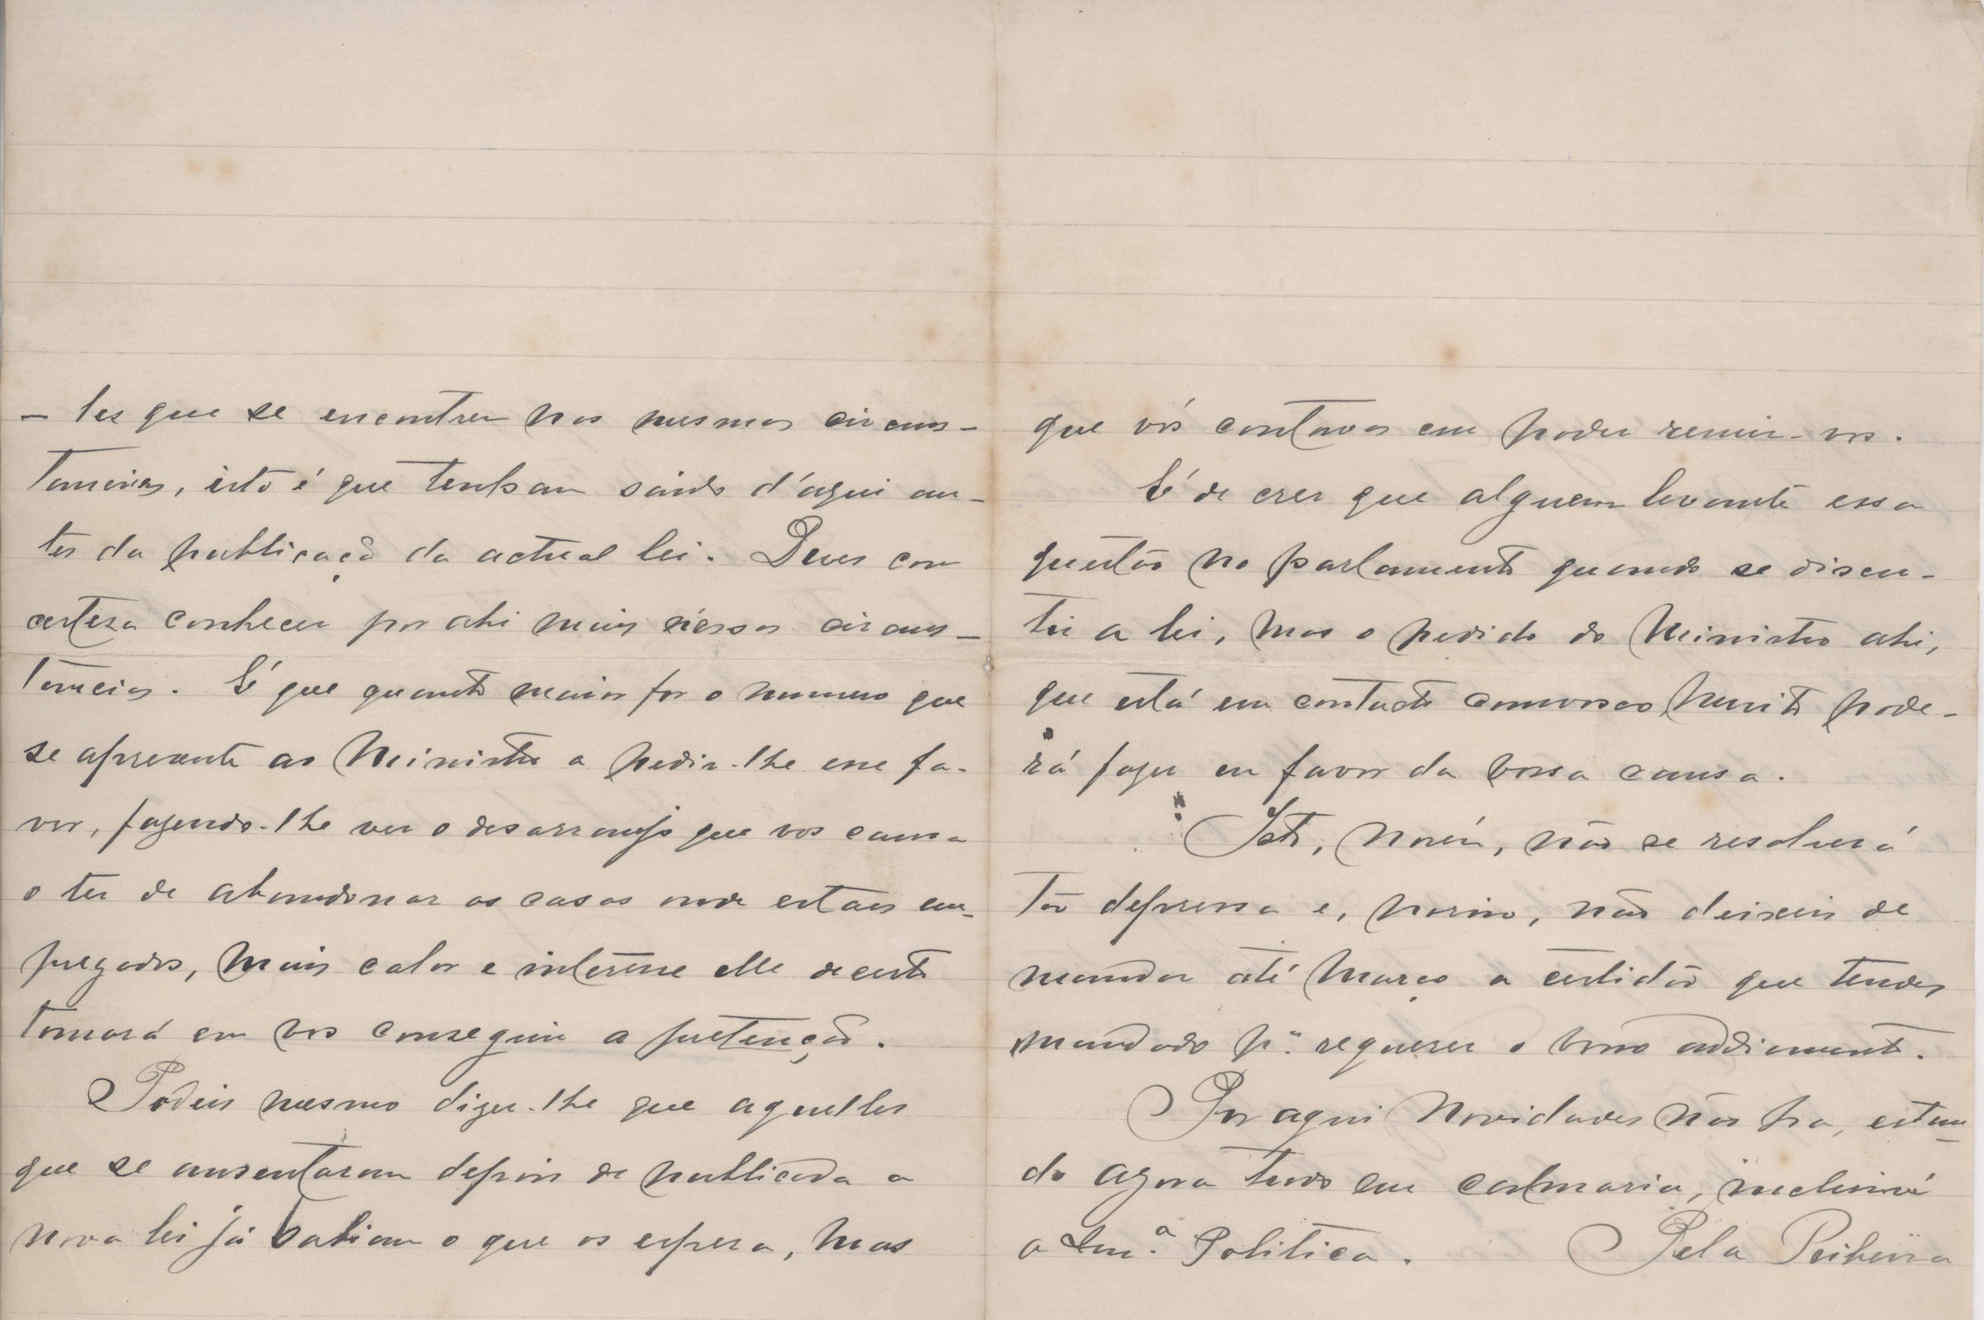 - les que se encontrem nas mesmas circums-
tancias, isto é que tenham saido d'aqui an-
tes da publicação da actual lei. Deves com
certeza conhecer por ahi mais n'essas circums-
tancias. E' que quanto maior for o numero que
se apresente ao Ministro a pedir-lhe esse fa-
vor, fazendo-lhe ver o desarranjo que vos causa
o ter de abandonar as casas onde estaes em-
pregados, mais calor e interesse elle decerto
tomará em vos conseguir a pretenção.
Podeis mesmo dizer-lhe que aquelles
que se ausentaram depois de publicada a
nova lei já sabiam o que os espera, mas
que vós contavas em poder remir-vos.
E' de crer que alguem levante essa
questão no parlamento quando se discu-
tir a lei, mas o pedido do Ministro ahi,
que está em contacto comvosco, muito pode-
rá fazer em favor da vossa causa.
Isto, porém, não se resolverá
tão depressa e, por isso, não deixeis de
mandar até Março a certidão que tendes
mandado pª. requerer o vosso addiamento.
Por aqui novidades não ha, estan-
do agora tudo em calmaria, inclusivé
a Snr.ª Politica. Pela Ribeira